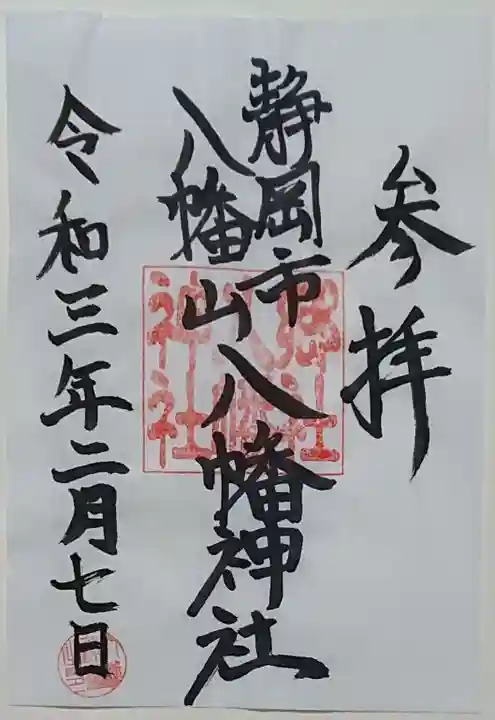 参拝
静岡市
八幡山
八幡神社
令和三年二月七日